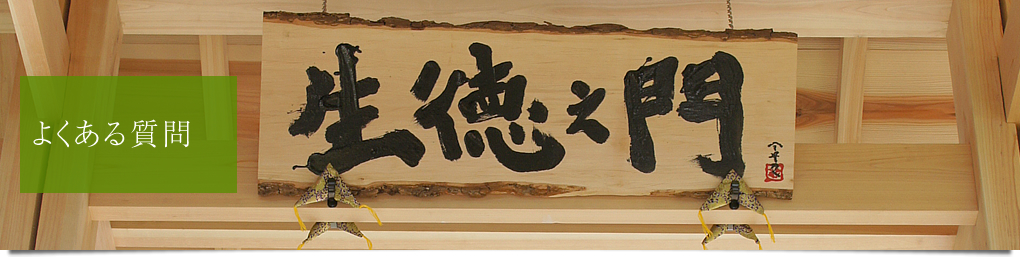 よくある質問
生徳之門